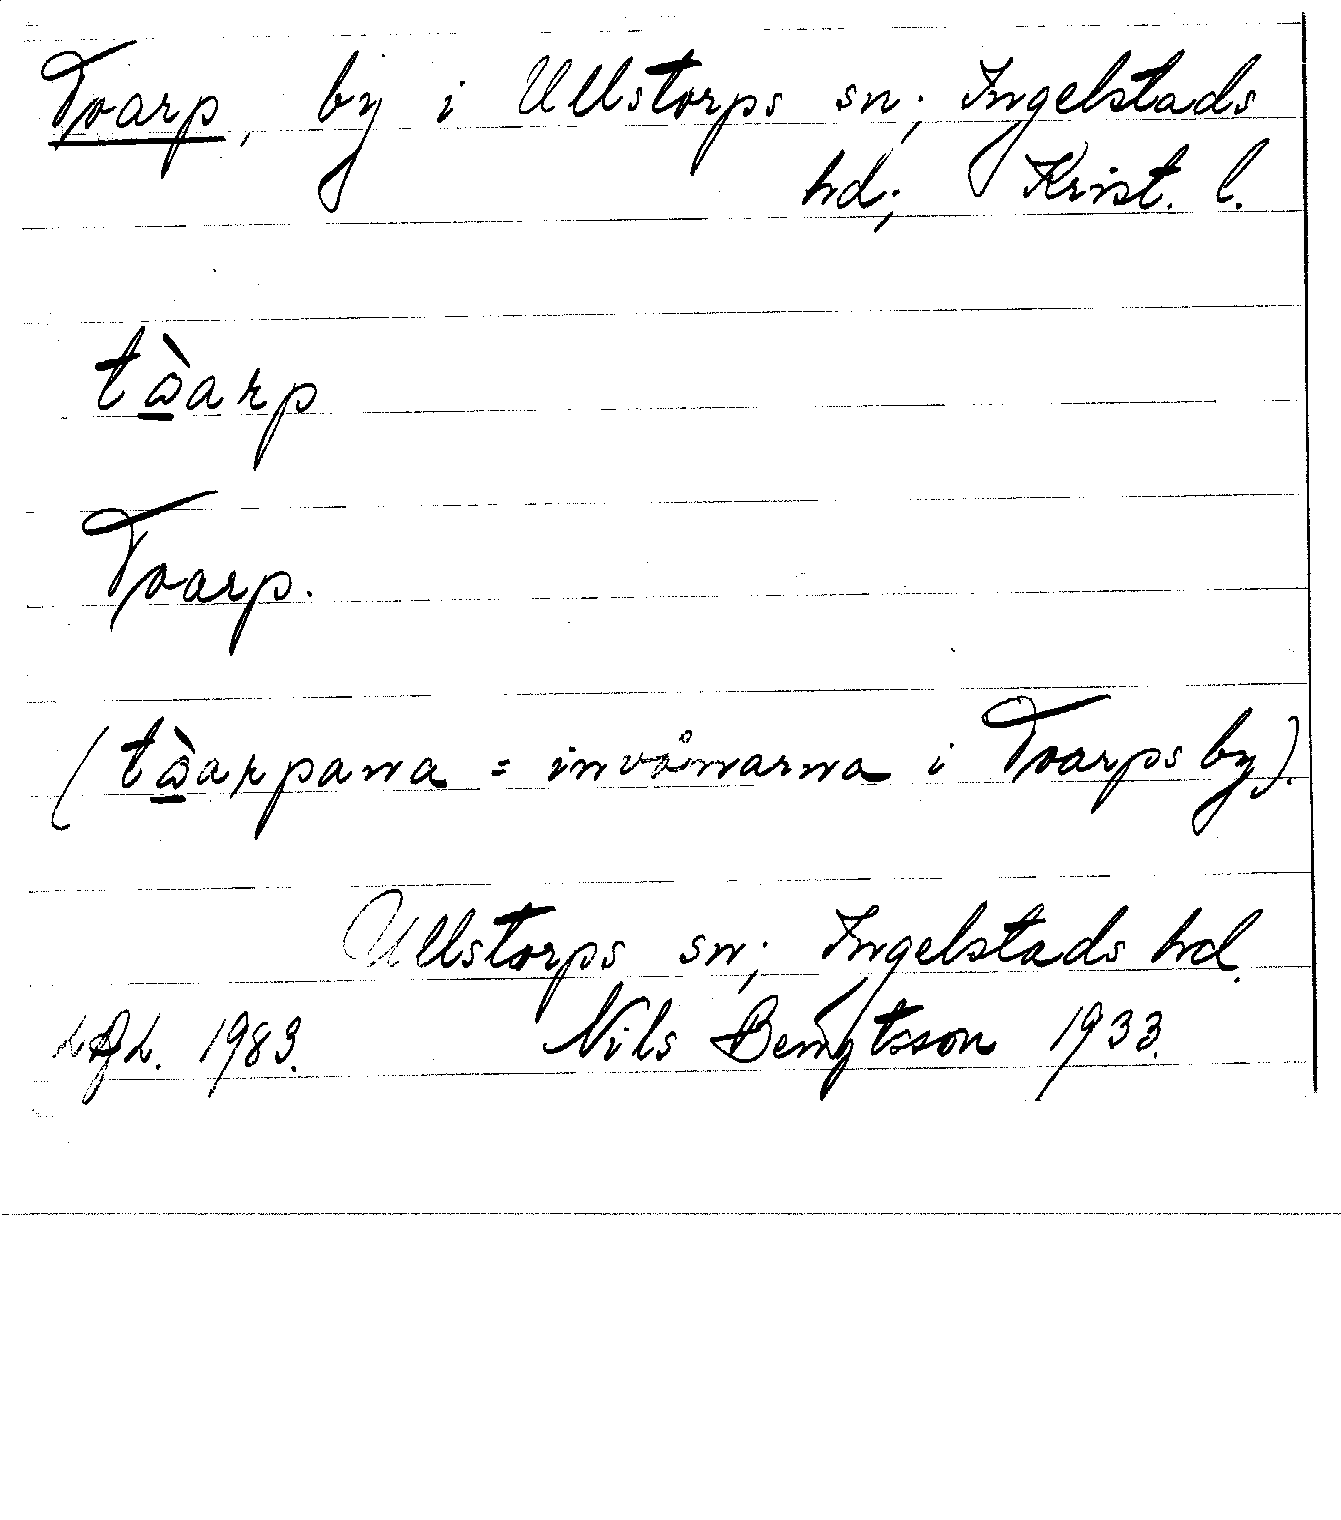 Toarp, by i Ullstorps sn; Ingelstads
hd; Krist. l.
tὼarp
Toarp.
(tὼarpana = invånarna i Toarps by).
Ullstorps sn; Ingelstads hd.
1983. Nils Bengtsson 1933.